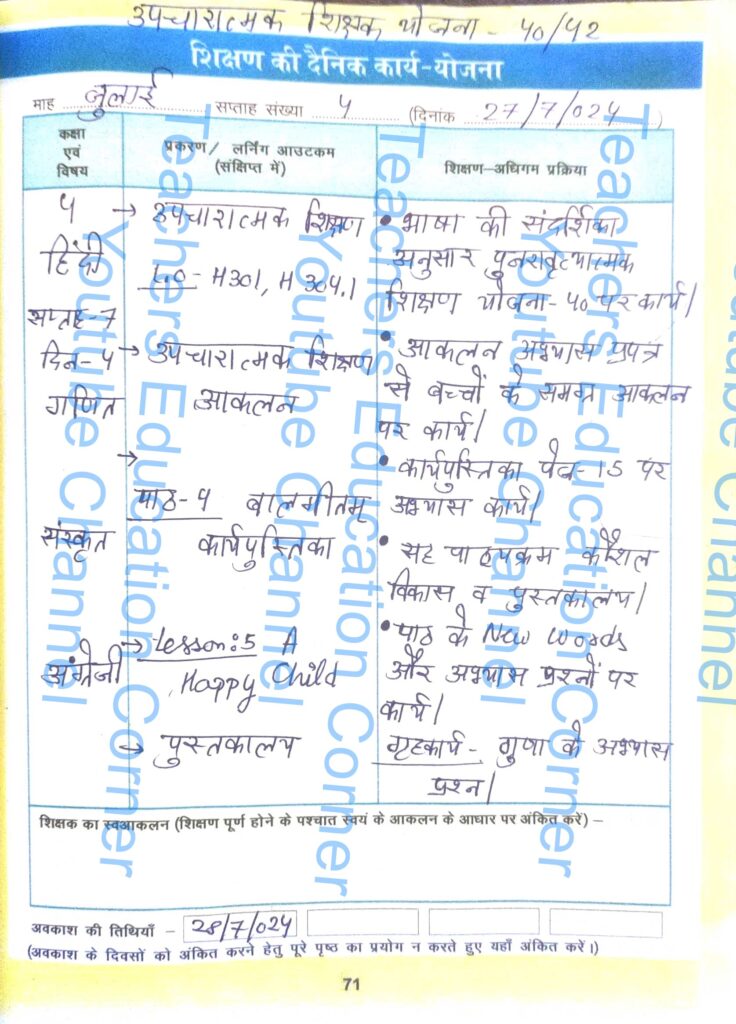 उपचारात्मक शिक्षक योजना - ५०/५२
शिक्षण की दैनिक कार्य-योजना
माह जुलाई सप्ताह संख्या ५ (दिनांक 27/7/024)
कक्षा एवं विषय
प्रकरण/ लर्निंग आउटकम (संक्षिप्त में)
शिक्षण-अधिगम प्रक्रिया
५
हिंदी
सप्ताह-7
दिन-५
गणित
संस्कृत
अंग्रेजी
→ उपचारात्मक शिक्षण
LO- H301, H304.1
→ उपचारात्मक शिक्षण
आकलन
→
पाठ-५ बालगीतम्
कार्यपुस्तिका
→ Lesson:5 A
Happy Child
→ पुस्तकालय
• भाषा की संदर्शिका
अनुसार पुनरावृत्यात्मक
शिक्षण योजना-५० पर कार्य।
• आकलन अभ्यास प्रपत्र
से बच्चों के समग्र आकलन
पर कार्य।
• कार्यपुस्तिका पेज-15 पर
अभ्यास कार्य।
• सह पाठ्यक्रम कौशल
विकास व पुस्तकालय।
• पाठ के New Words
और अभ्यास प्रश्नों पर
कार्य।
गृहकार्य- गुणा के अभ्यास
प्रश्न।
शिक्षक का स्वआकलन (शिक्षण पूर्ण होने के पश्चात स्वयं के आकलन के आधार पर अंकित करें) –
अवकाश की तिथियाँ – 28/7/024
(अवकाश के दिवसों को अंकित करने हेतु पूरे पृष्ठ का प्रयोग न करते हुए यहाँ अंकित करें।)
71
Teachers Education Corner
Youtube Channel
Teachers Education Corner
Youtube Channel
Teachers Education Corner
Youtube Channel